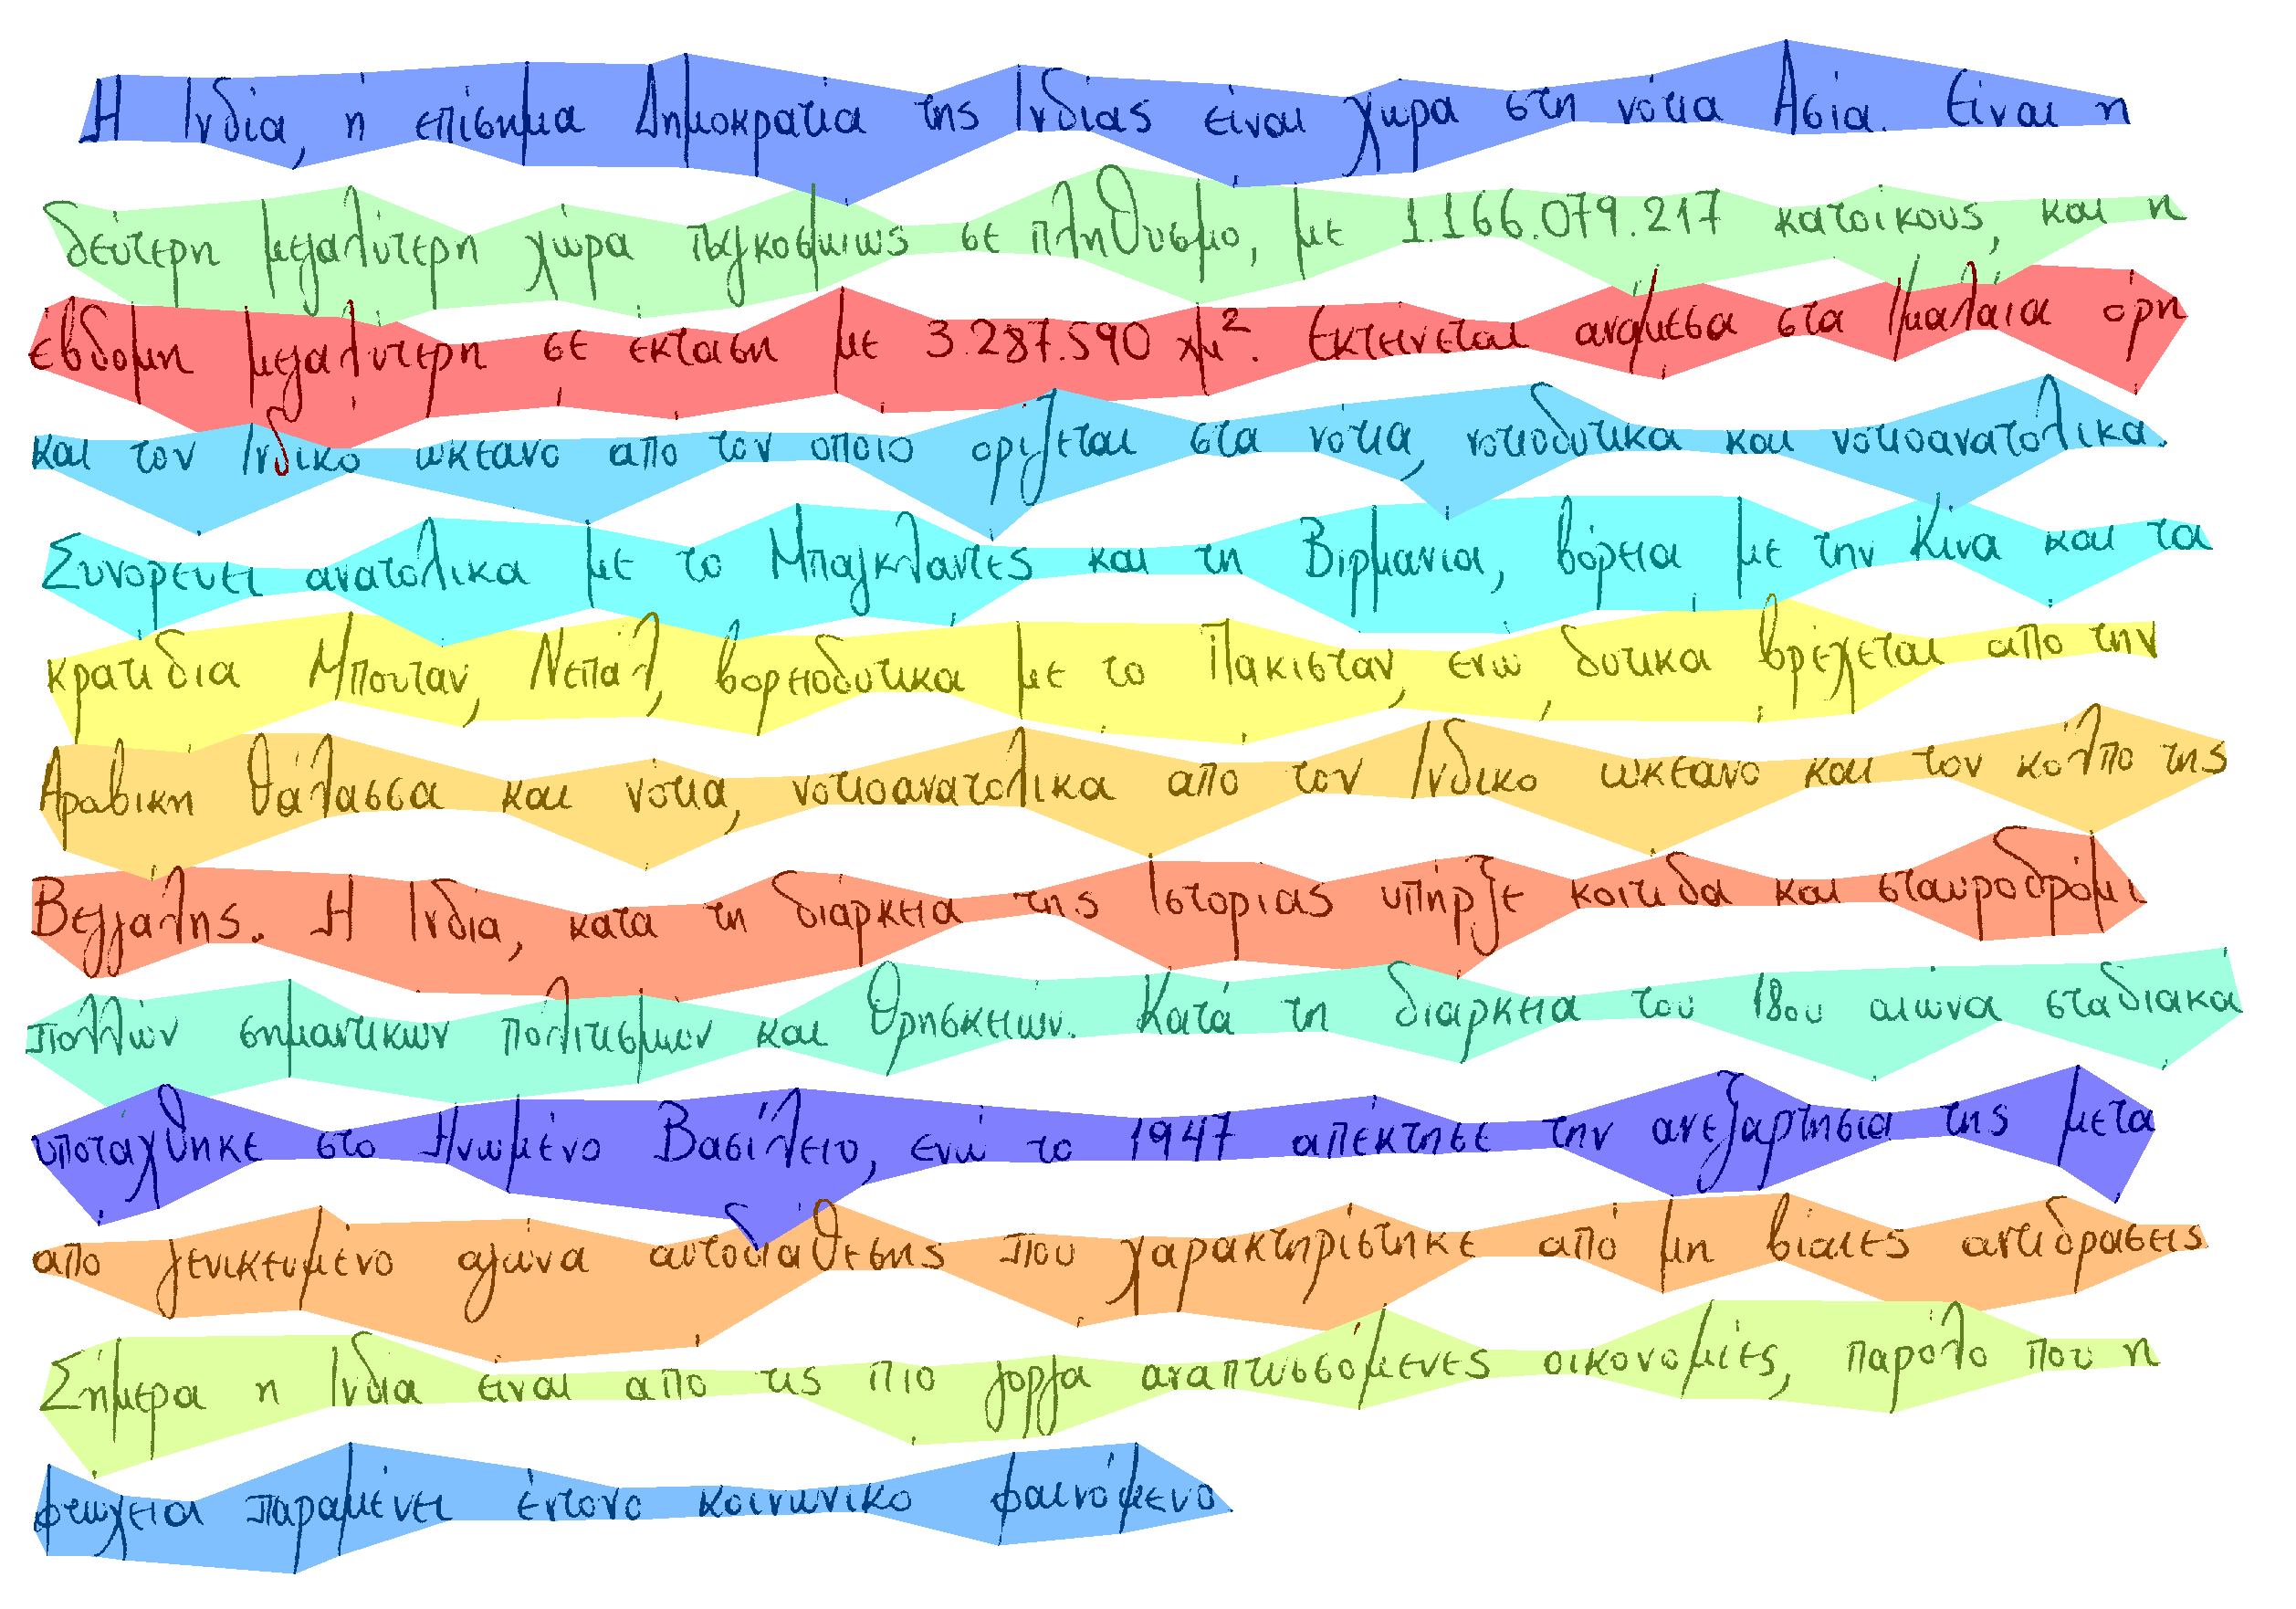 Η Ινδία, η επίσημα Δημοκρατία της Ινδίας είναι χώρα στη νότια Ασία. Είναι η
δεύτερη μεγαλύτερη χώρα παγκοσμιως σε πληθυσμο, με 1.166.079.217 κατοίκους, και η
έβδομη μεγαλύτερη σε έκταση με 3.287.590 χμ². Εκτείνεται ανάμεσα στα Ιμαλάια όρη
και τον Ινδικό ωκεανο απο τον οποιο οριζεται στα νότια, νοτιοδυτικα και νοτιοανατολικα.
Συνορευει ανατολικα με το Μπαγκλαντές και τη Βιρμανια, βόρεια με την Κίνα και τα
κρατιδια Μπουταν, Νεπάλ, βορειοδυτικα με το Πακισταν, ενώ δυτικα βρέχεται απο την
Αραβικη θάλασσα και νότια, νοτιοανατολικα απο τον Ινδικο ωκεανο και τον κόλπο της
Βεγγάλης. Η Ινδία, κατα τη διάρκεια της Ιστορίας υπήρξε κοιτιδα και σταυροδρόμι
πολλών σημαντικων πολιτισμών και θρησκειών. Κατά τη διαρκεια του 18ου αιώνα σταδιακα
υποτάχθηκε στο Ηνωμένο Βασίλειο, ενώ το 1947 απέκτησε την ανεξαρτησια της μετα
απο γενικευμένο αγώνα αυτοδιάθεσης που χαρακτηρίστηκε από μη βίαιες αντιδρασεις
Σήμερα η Ινδια είναι απο τις πιο γοργα αναπτυσσόμενες οικονομίες, παρόλο που η
φτώχεια παραμένει έντονο κοινωνικο φαινόμενο